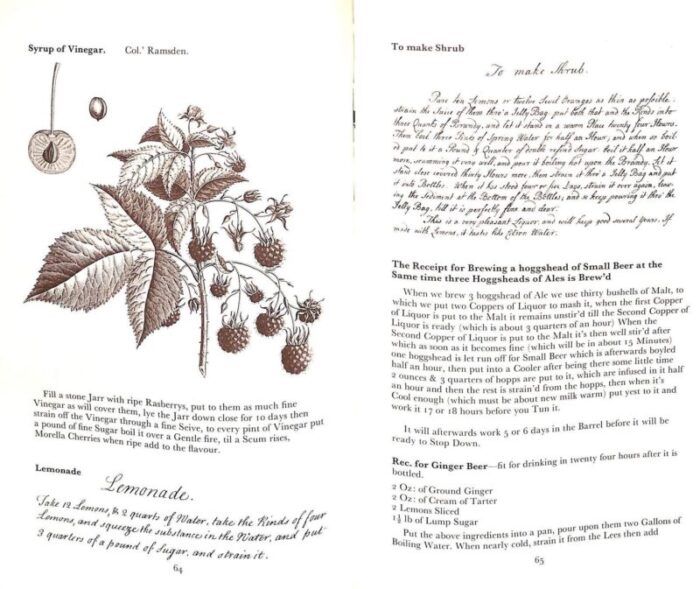 Syrup of Vinegar. Col.' Ramsden.
Fill a stone Jarr with ripe Rasberrys, put to them as much fine
Vinegar as will cover them, lye the Jarr down close for 10 days then
strain off the Vinegar through a fine Seive, to every pint of Vinegar put
a pound of fine Sugar boil it over a Gentle fire, til a Scum rises,
Morella Cherries when ripe add to the flavour.
Lemonade
Lemonade.
Take 12 Lemons, & 2 quarts of Water, take the Rinds of four
Lemons, and squeeze the substance in the Water, and put
3 quarters of a pound of Sugar, and strain it.
64
To make Shrub
To make Shrub.
Pare ten Lemons or twelve Sevil Oranges as thin as possible.
strain the Juice of them thro' a Jelly Bag. put both that and the Rinds into
three Quarts of Brandy, and let it stand in a warm Place twenty four Hours.
Then boil three Pints of Spring Water for half an Hour, and when so boil
'd put to it a Pound & Quarter of double refin'd Sugar. boil it half an Hour
more, scumming it very well, and pour it boiling hot upon the Brandy. Let it
stand close covered thirty Hours more, then strain it thro' a Jelly Bag and put
it into Bottles. When it has stood four or five Days, strain it over again, leav-
ing the Sediment at the Bottom of the Bottles; and so keep pouring it thro' the
Jelly Bag, till it is perfectly fine and clear.
This is a very pleasant Liquor, and will keep good several Years. If
made with Lemons, it tastes like Citron Water.
The Receipt for Brewing a hoggshead of Small Beer at the
Same time three Hoggsheads of Ales is Brew'd
When we brew 3 hoggshead of Ale we use thirty bushells of Malt, to
which we put two Coppers of Liquor to mash it, when the first Copper
of Liquor is put to the Malt it remains unstir'd till the Second Copper of
Liquor is ready (which is about 3 quarters of an hour) When the
Second Copper of Liquor is put to the Malt it's then well stir'd after
which as soon as it becomes fine (which will be in about 15 Minutes)
one hoggshead is let run off for Small Beer which is afterwards boyled
half an hour, then put into a Cooler after being there some little time
2 ounces & 3 quarters of hopps are put to it, which are infused in it half
an hour and then the rest is strain'd from the hopps, then when it's
Cool enough (which must be about new milk warm) put yest to it and
work it 17 or 18 hours before you Tun it.
It will afterwards work 5 or 6 days in the Barrel before it will be
ready to Stop Down.
Rec. for Ginger Beer—fit for drinking in twenty four hours after it is
bottled.
2 Oz: of Ground Ginger
2 Oz: of Cream of Tarter
2 Lemons Sliced
1½ lb of Lump Sugar
Put the above ingredients into a pan, pour upon them two Gallons of
Boiling Water. When nearly cold, strain it from the Lees then add
65